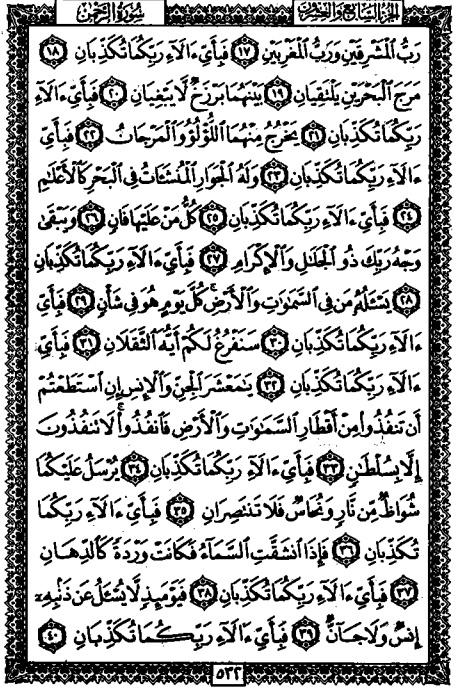 الجزء السابع والعشرين سورة الرحمن
رَبُّ ٱلْمَشْرِقَيْنِ وَرَبُّ ٱلْمَغْرِبَيْنِ ١٧ فَبِأَيِّ ءَالَآءِ رَبِّكُمَا تُكَذِّبَانِ ١٨
مَرَجَ ٱلْبَحْرَيْنِ يَلْتَقِيَانِ ١٩ بَيْنَهُمَا بَرْزَخٌ لَّا يَبْغِيَانِ ٢٠ فَبِأَيِّ ءَالَآءِ
رَبِّكُمَا تُكَذِّبَانِ ٢١ يَخْرُجُ مِنْهُمَا ٱللُّؤْلُؤُ وَٱلْمَرْجَانُ ٢٢ فَبِأَيِّ
ءَالَآءِ رَبِّكُمَا تُكَذِّبَانِ ٢٣ وَلَهُ ٱلْجَوَارِ ٱلْمُنشَـَٔاتُ فِي ٱلْبَحْرِ كَٱلْأَعْلَٰمِ
٢٤ فَبِأَيِّ ءَالَآءِ رَبِّكُمَا تُكَذِّبَانِ ٢٥ كُلُّ مَنْ عَلَيْهَا فَانٍ ٢٦ وَيَبْقَىٰ
وَجْهُ رَبِّكَ ذُو ٱلْجَلَٰلِ وَٱلْإِكْرَامِ ٢٧ فَبِأَيِّ ءَالَآءِ رَبِّكُمَا تُكَذِّبَانِ
٢٨ يَسْـَٔلُهُۥ مَن فِي ٱلسَّمَٰوَٰتِ وَٱلْأَرْضِ ۚ كُلَّ يَوْمٍ هُوَ فِي شَأْنٍ ٢٩ فَبِأَيِّ
ءَالَآءِ رَبِّكُمَا تُكَذِّبَانِ ٣٠ سَنَفْرُغُ لَكُمْ أَيُّهَ ٱلثَّقَلَانِ ٣١ فَبِأَيِّ
ءَالَآءِ رَبِّكُمَا تُكَذِّبَانِ ٣٢ يَٰمَعْشَرَ ٱلْجِنِّ وَٱلْإِنسِ إِنِ ٱسْتَطَعْتُمْ
أَن تَنفُذُوا۟ مِنْ أَقْطَارِ ٱلسَّمَٰوَٰتِ وَٱلْأَرْضِ فَٱنفُذُوا۟ ۚ لَا تَنفُذُونَ
إِلَّا بِسُلْطَٰنٍ ٣٣ فَبِأَيِّ ءَالَآءِ رَبِّكُمَا تُكَذِّبَانِ ٣٤ يُرْسَلُ عَلَيْكُمَا
شُوَاظٌ مِّن نَّارٍ وَنُحَاسٌ فَلَا تَنتَصِرَانِ ٣٥ فَبِأَيِّ ءَالَآءِ رَبِّكُمَا
تُكَذِّبَانِ ٣٦ فَإِذَا ٱنشَقَّتِ ٱلسَّمَآءُ فَكَانَتْ وَرْدَةً كَٱلدِّهَانِ
٣٧ فَبِأَيِّ ءَالَآءِ رَبِّكُمَا تُكَذِّبَانِ ٣٨ فَيَوْمَئِذٍ لَّا يُسْـَٔلُ عَن ذَنۢبِهِۦٓ
إِنسٌ وَلَا جَآنٌّ ٣٩ فَبِأَيِّ ءَالَآءِ رَبِّكُمَا تُكَذِّبَانِ ٤٠
٥٣٢